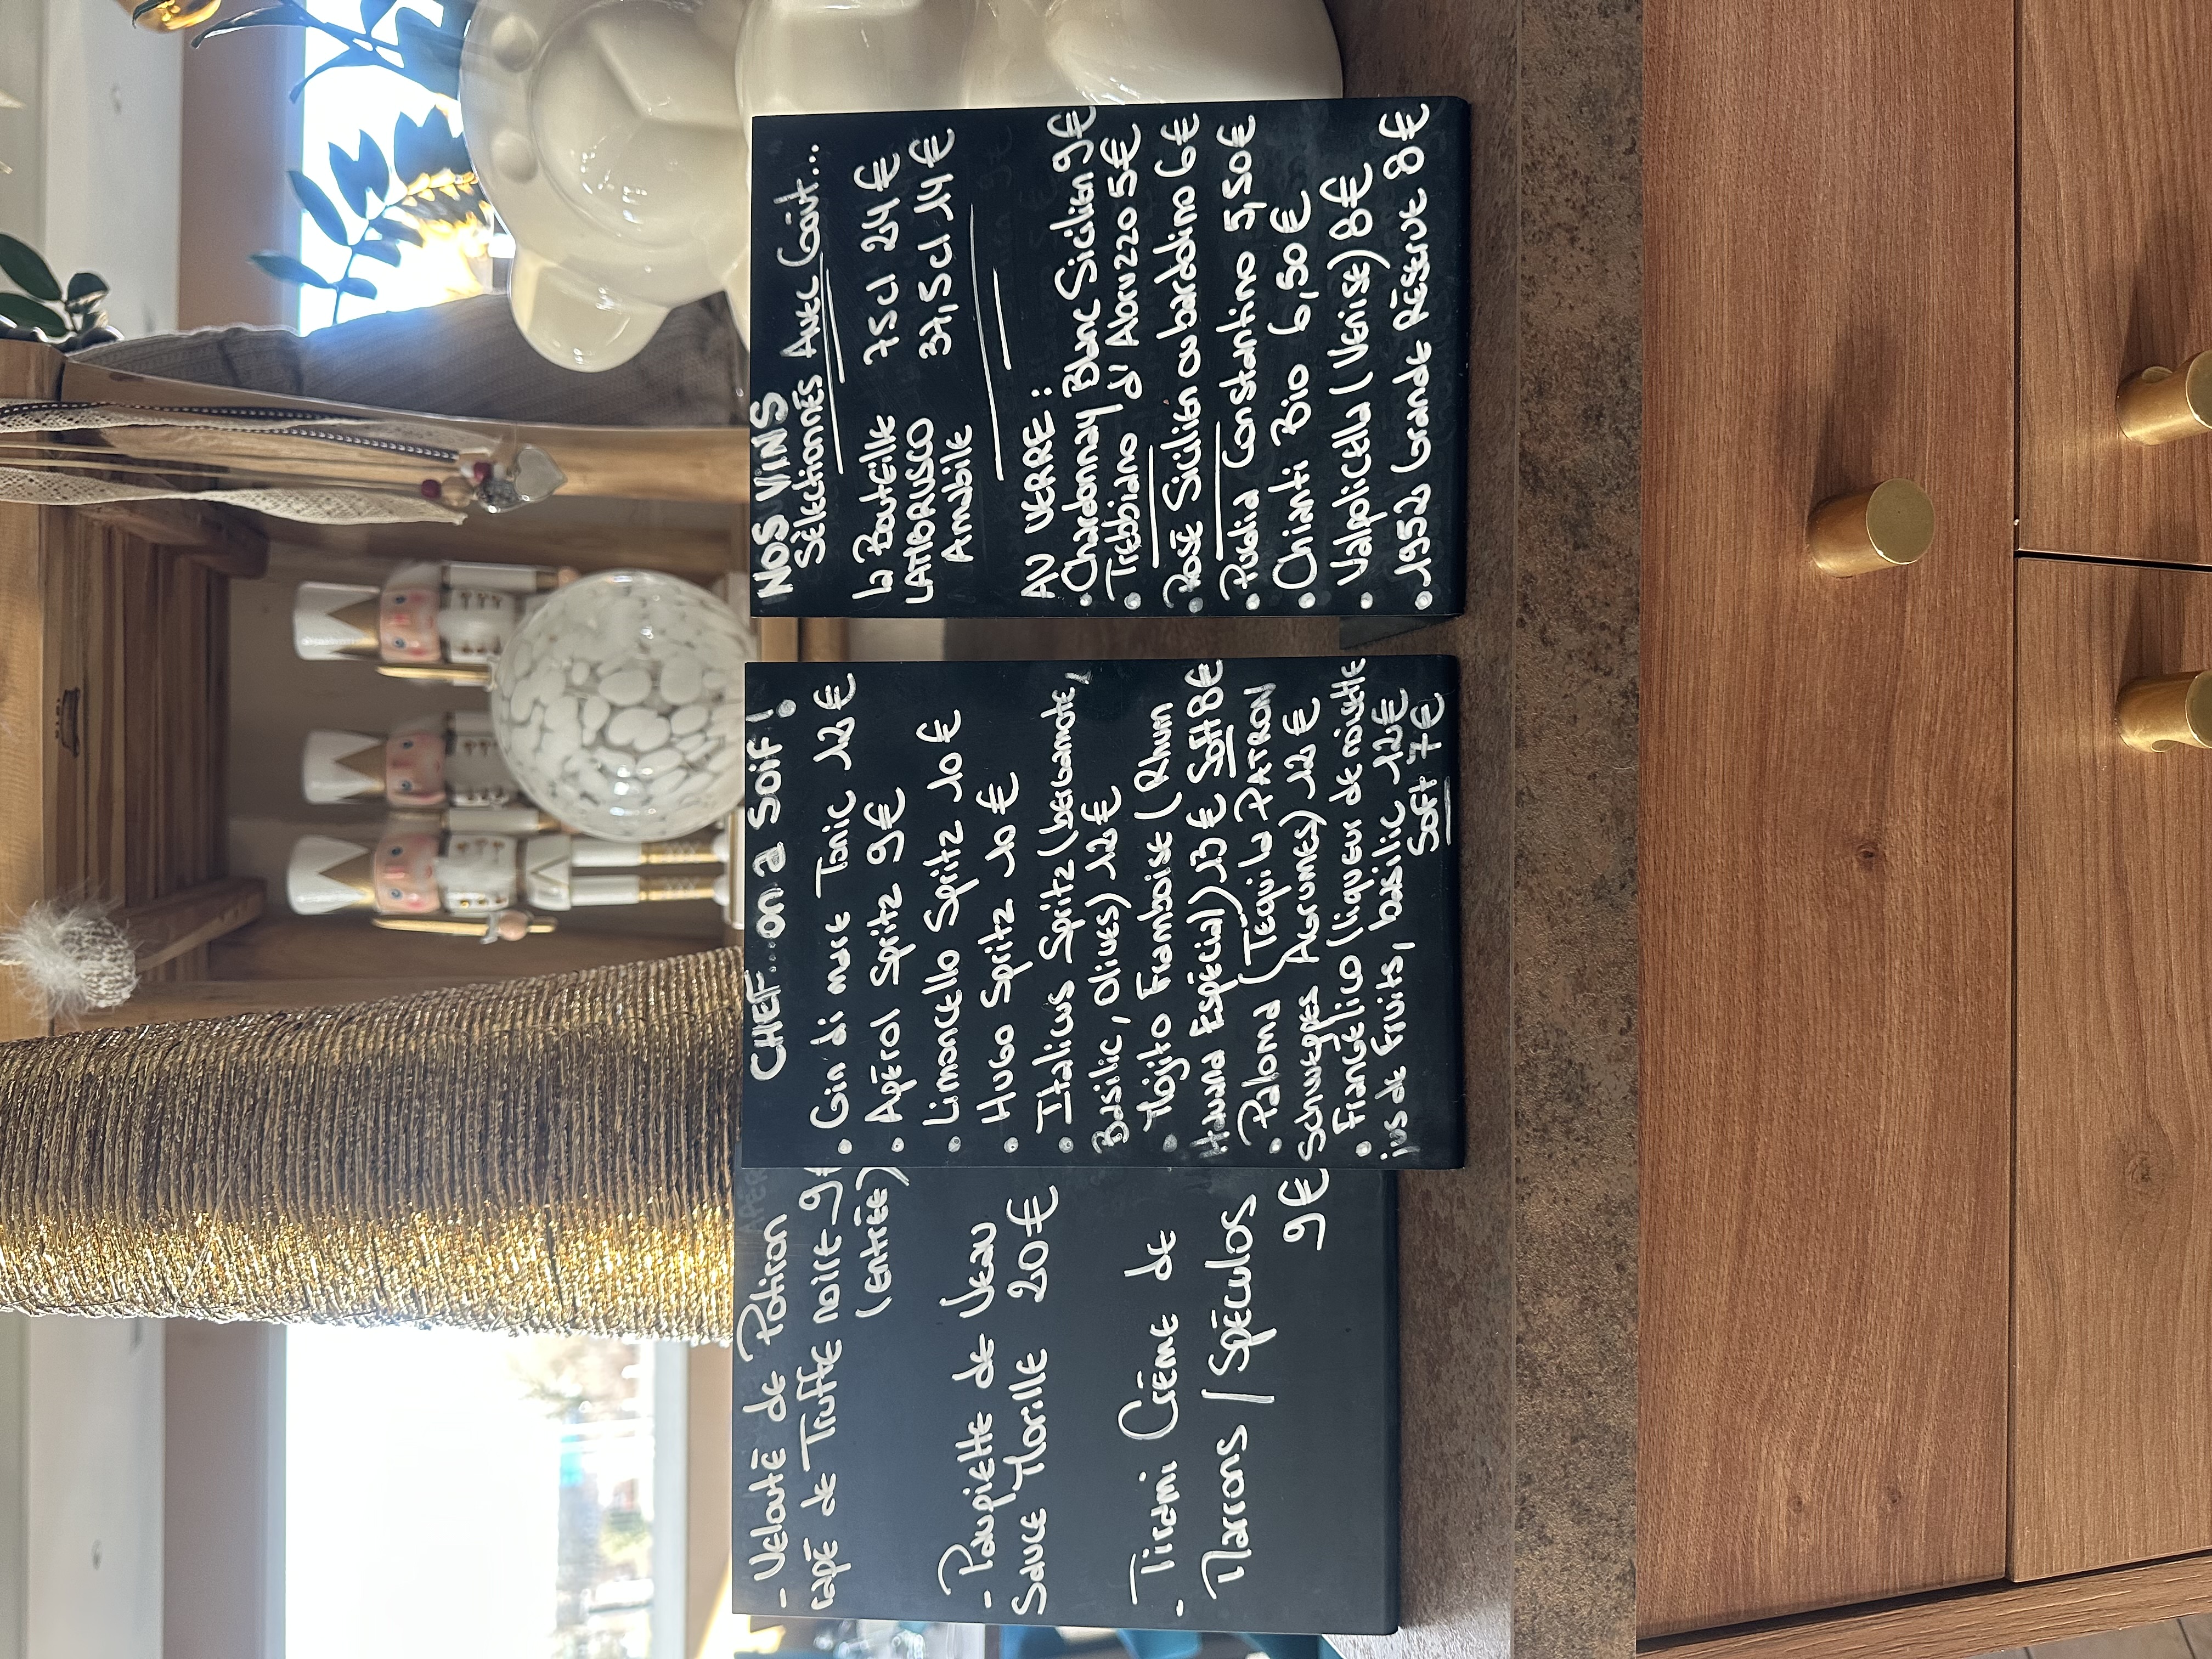 - Velouté de Potiron
rapé de Truffe noire 9€
(entrée)
- Paupiette de Veau
Sauce Morille 20€
- Tirami Crème de
Marrons / Spéculos
9€
CHEF... on a soif !
• Gin di mare Tonic 12€
• Apérol Spritz 9€
• Limoncello Spritz 10€
• Hugo Spritz 10€
• Italicus Spritz (bergamote,
Basilic, Olives) 12€
• Mojito Framboise (Rhum
Havana Espécial) 13€ Soft 8€
• Paloma (Tequila PATRON
Schweppes Agrumes) 12€
• Frangelico (liqueur de noisette
jus de fruits, basilic 12€
Soft 7€
NOS VINS
Sélectionnés Avec Goût...
La Bouteille 75cl 24€
LAMBRUSCO 37,5cl 14€
Amabile
AU VERRE :
• Chardonnay Blanc Sicilien 9€
• Trebbiano d'Abruzzo 5€
• Rosé Sicilien ou bardolino 6€
• Puglia Constantino 5,50€
• Chianti Bio 6,50€
• Valpolicella (Venise) 8€
• 1952 Grande Réserve 8€